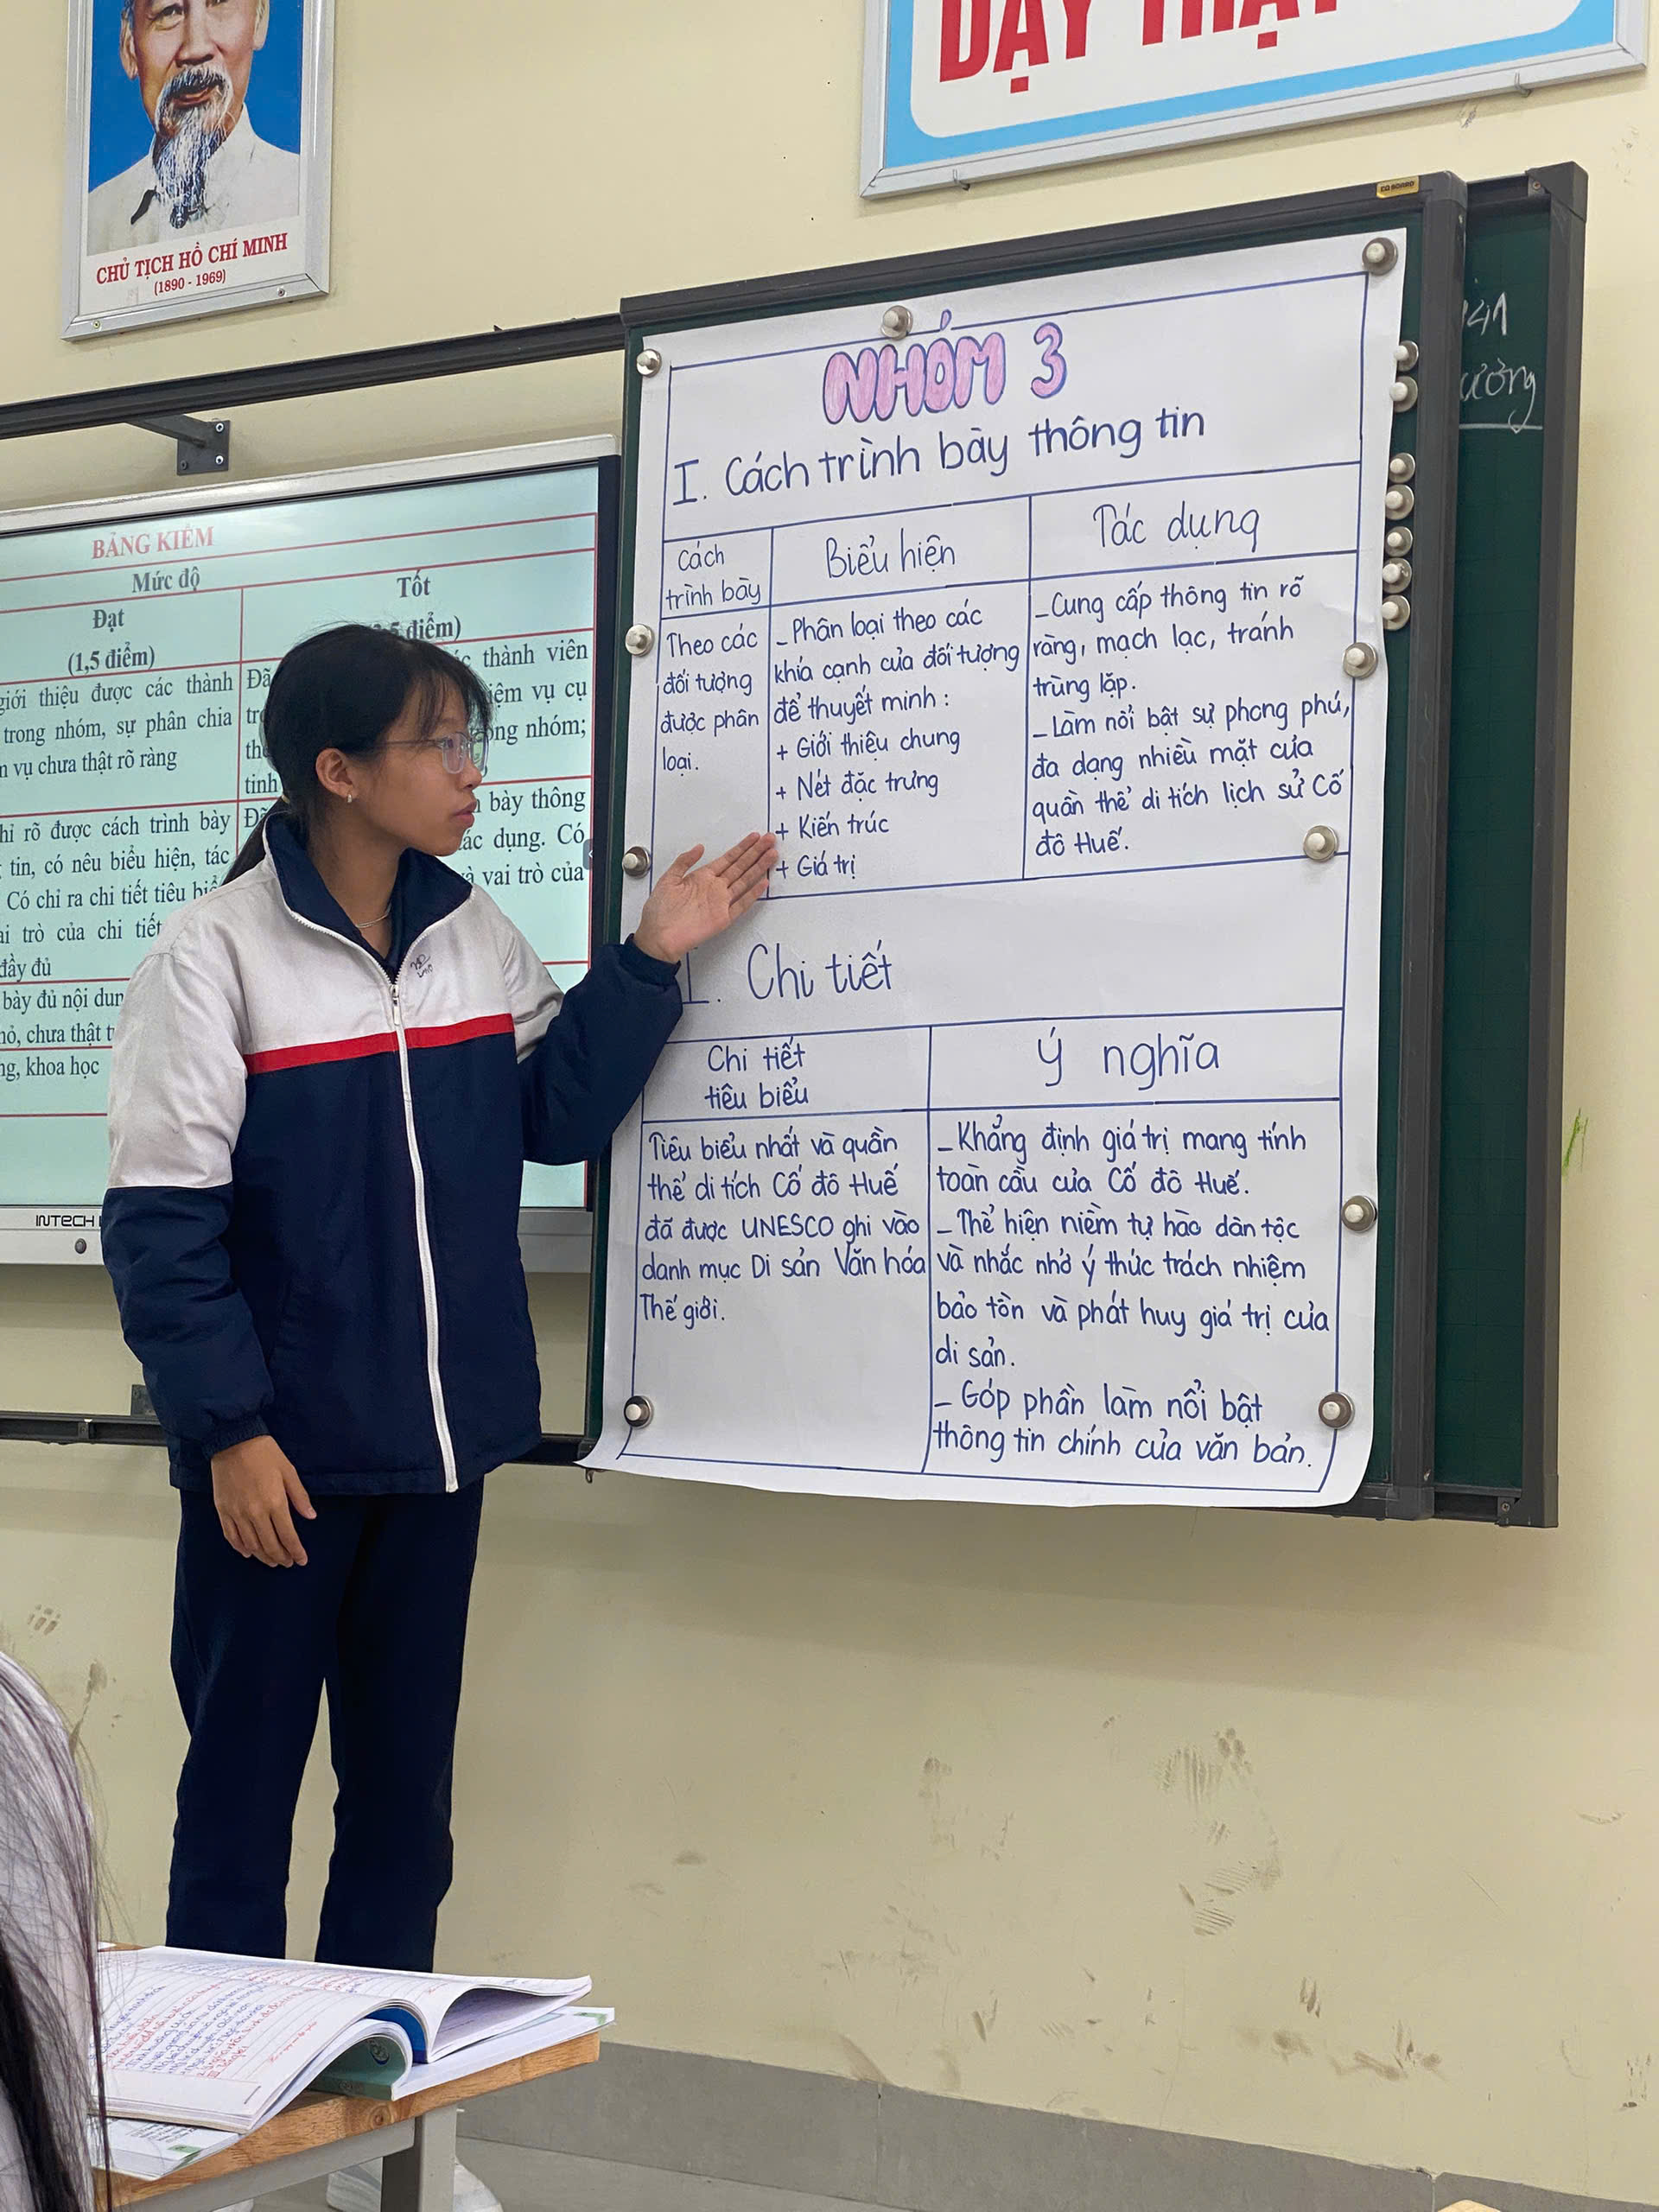 CHỦ TỊCH HỒ CHÍ MINH
(1890 - 1969)
DẠY
EQ BOARD
BẢNG KIỂM
Mức độ
Đạt
(1,5 điểm)
Tốt
điểm)
giới thiệu được các thành
trong nhóm, sự phân chia
vụ chưa thật rõ ràng
thành viên
vụ cụ
nhóm;
tinh
rõ được cách trình bày
tin, có nêu biểu hiện, tác
Có chỉ ra chi tiết tiêu
trò của chi tiết
đầy đủ
bày thông
dụng. Có
vai trò của
bày đủ nội
chưa thật
khoa học
INTECH
NHÓM 3
I. Cách trình bày thông tin
Cách
trình bày
Biểu hiện
Tác dụng
Theo các
đối tượng
được phân
loại.
- Phân loại theo các
khía cạnh của đối tượng
để thuyết minh:
+ Giới thiệu chung
+ Nét đặc trưng
+ Kiến trúc
+ Giá trị
- Cung cấp thông tin rõ
ràng, mạch lạc, tránh
trùng lặp.
- Làm nổi bật sự phong phú,
đa dạng nhiều mặt của
quần thể di tích lịch sử Cố
đô Huế.
Chi tiết
Chi tiết
tiêu biểu
Ý nghĩa
Tiêu biểu nhất và quần
thể di tích Cố đô Huế
đã được UNESCO ghi vào
danh mục Di sản Văn hóa
Thế giới.
- Khẳng định giá trị mang tính
toàn cầu của Cố đô Huế.
- Thể hiện niềm tự hào dân tộc
và nhắc nhở ý thức trách nhiệm
bảo tồn và phát huy giá trị của
di sản.
- Góp phần làm nổi bật
thông tin chính của văn bản.